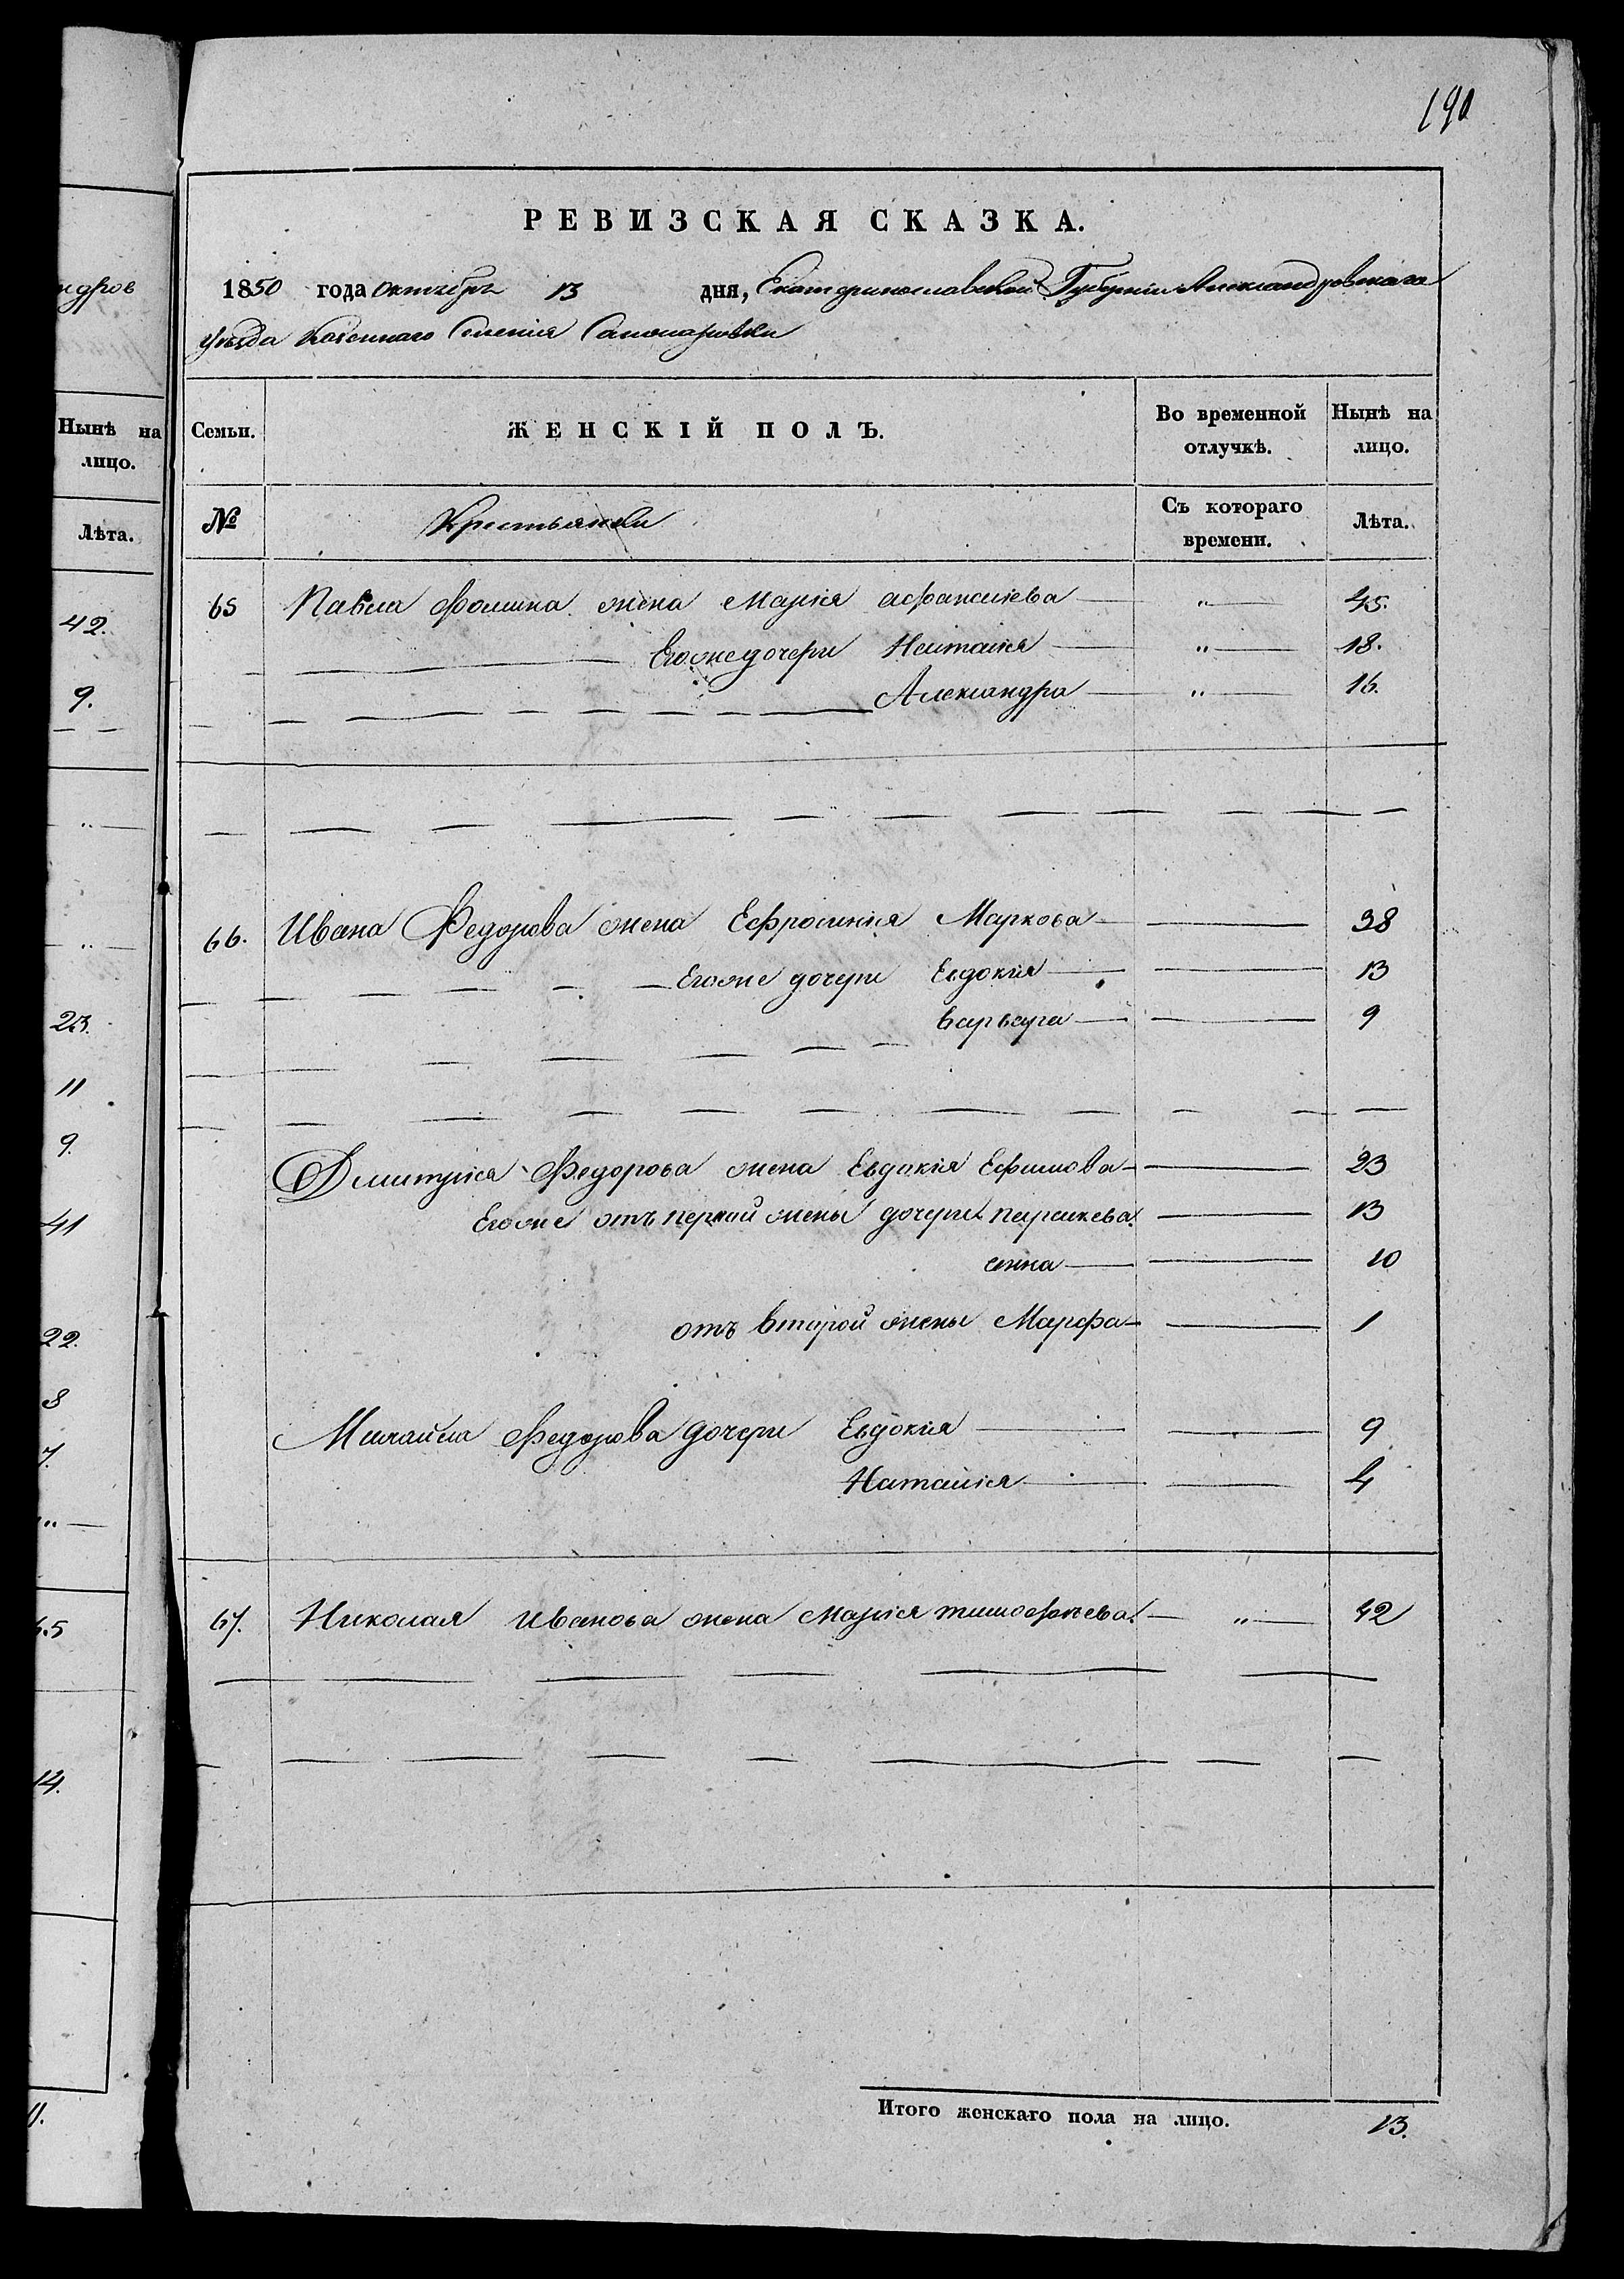 190
РЕВИЗСКАЯ СКАЗКА.
1850 года октября 13 дня, Екатеринославской Губернии Александровскаго
уѣзда Казеннаго Селенія
ндров
Нынѣ на
лицо.
Лѣта.
42.
9.
23.
11
9.
41
22.
8
7.
14.
Семьи. ЖЕНСКІЙ ПОЛЪ. Во временной отлучкѣ. Нынѣ на лицо.
№ Крестьянки Съ котораго времени. Лѣта.
65 Павла Фомина жена Марія Афанасіева " 45.
Егоже дочери Наталія " 18.
Александра " 16.
66. Ивана Федорова жена Ефросинія Маркова 38
Егоже дочери Евдокія 13
Варвара 9
Дмитрія Федорова жена Евдокія Ефимова 23
Егоже отъ первой жены дочери Параскева 13
Анна 10
отъ второй жены Марфа 1
Михайла Федорова дочери Евдокія 9
Наталія 4
67. Николая Иванова жена Марія Тимофѣева " 42
Итого женскаго пола на лицо. 13.